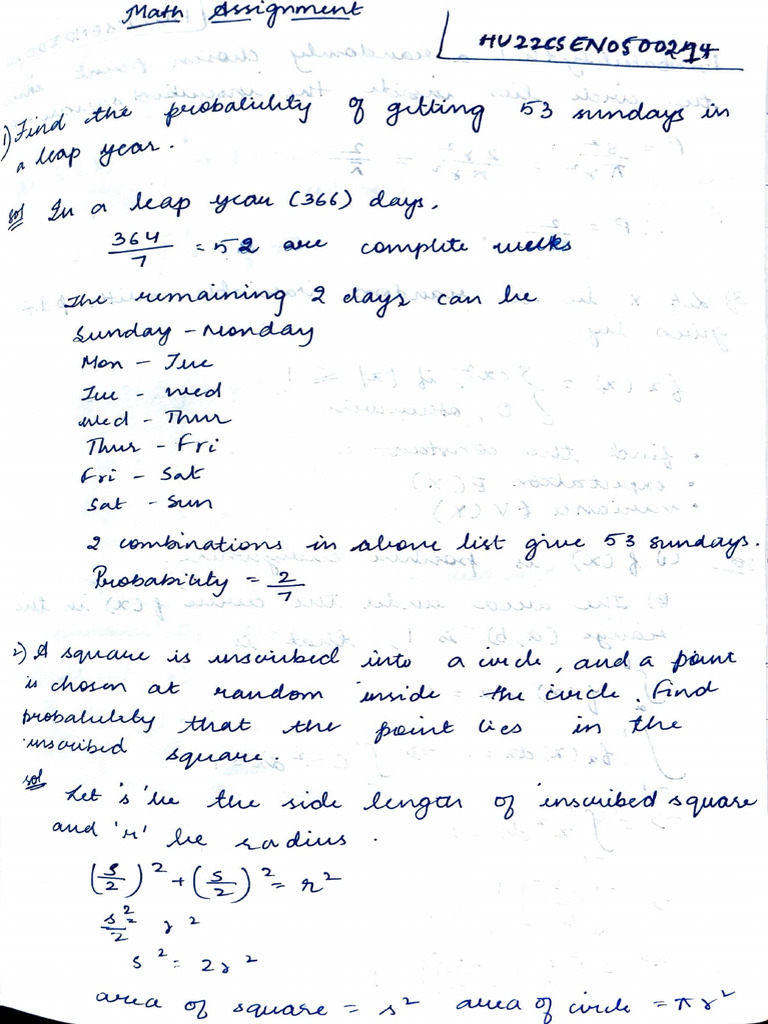 Math Assignment
HU22CSEN0500294
1) Find the probability of getting 53 sundays in
a leap year.
sol In a leap year (366) days,
364/7 = 52 are complete weeks
The remaining 2 days can be
Sunday - Monday
Mon - Tue
Tue - Wed
Wed - Thur
Thur - Fri
Fri - Sat
Sat - Sun
2 combinations in above list give 53 sundays.
Probability = 2/7
2) A square is inscribed into a circle, and a point
is chosen at random inside the circle. Find
probability that the point lies in the
inscribed square.
sol
Let 's' be the side length of inscribed square
and 'r' be radius.
(s/2)² + (s/2)² = r²
s²/2 = r²
s² = 2r²
area of square = s² area of circle = πr²